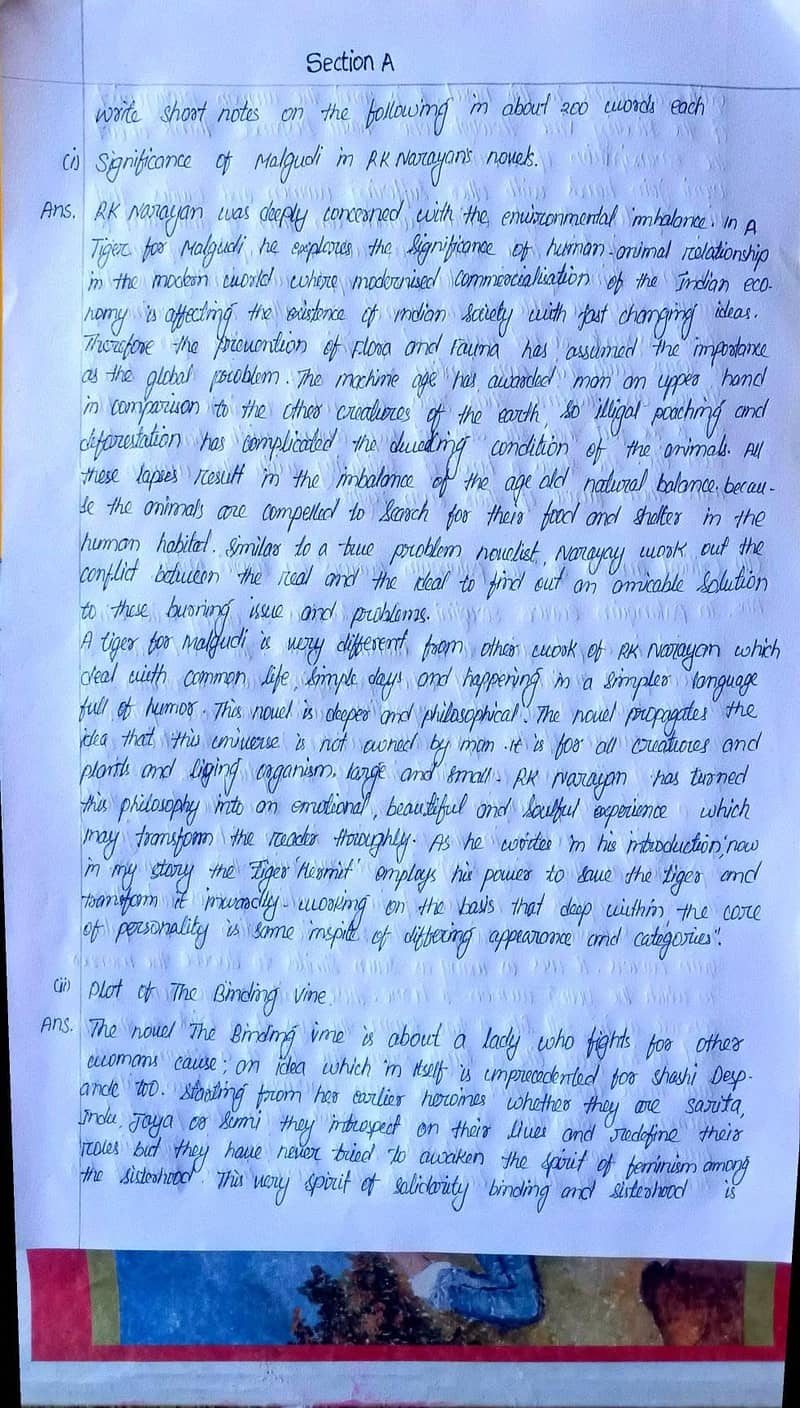 Section A
Write short notes on the following in about 200 words each
(i) Significance of Malgudi in RK Narayan's novels.
Ans. RK Narayan was deeply concerned with the environmental imbalance. In A
Tiger for Malgudi he explores the significance of human-animal relationship
in the modern world where modernised commercialisation of the Indian eco-
nomy is affecting the existence of indian society with fast changing ideas.
Therefore the prevention of Flora and Fauna has assumed the importance
as the global problem. The machine age has awarded man an upper hand
in comparison to the other creatures of the earth, so illigal poaching and
deforestation has complicated the dwelling condition of the animals. All
these lapses result in the imbalance of the age old natural balance, becau-
se the animals are compelled to search for their food and shelter in the
human habitat. Similar to a true problem novelist, Narayay work out the
conflict between the real and the ideal to find out an amicable solution
to these burning issue and problems.
A tiger for Malgudi is very different from other work of RK Narayan which
deal with common life, simple days and happening in a simpler language
full of humor. This novel is deeper and philosophical. The novel propagates the
idea that this universe is not owned by man. It is for all creatures and
plants and liging organism, large and small. RK Narayan has turned
this philosophy into an emotional, beautiful and soulful experience which
may transform the reader thoroughly. As he writes in his introduction, 'now
in my story the Tiger 'Hermit' employs his power to save the tiger and
transform it inwardly - working on the basis that deep within, the core
of personality is same inspite of differing appearance and categories".
(ii) Plot of The Binding Vine
Ans. The novel The Binding vine is about a lady who fights for other
womans cause; an idea which in itself is unprecedented for Shashi Desp-
ande too. Starting from her earlier heroines whether they are Sarita,
Indu, Jaya or Sumi they introspect on their lives and redefine their
roles but they have never tried to awaken the spirit of feminism among
the sisterhood. This very spirit of solidarity binding and sisterhood is